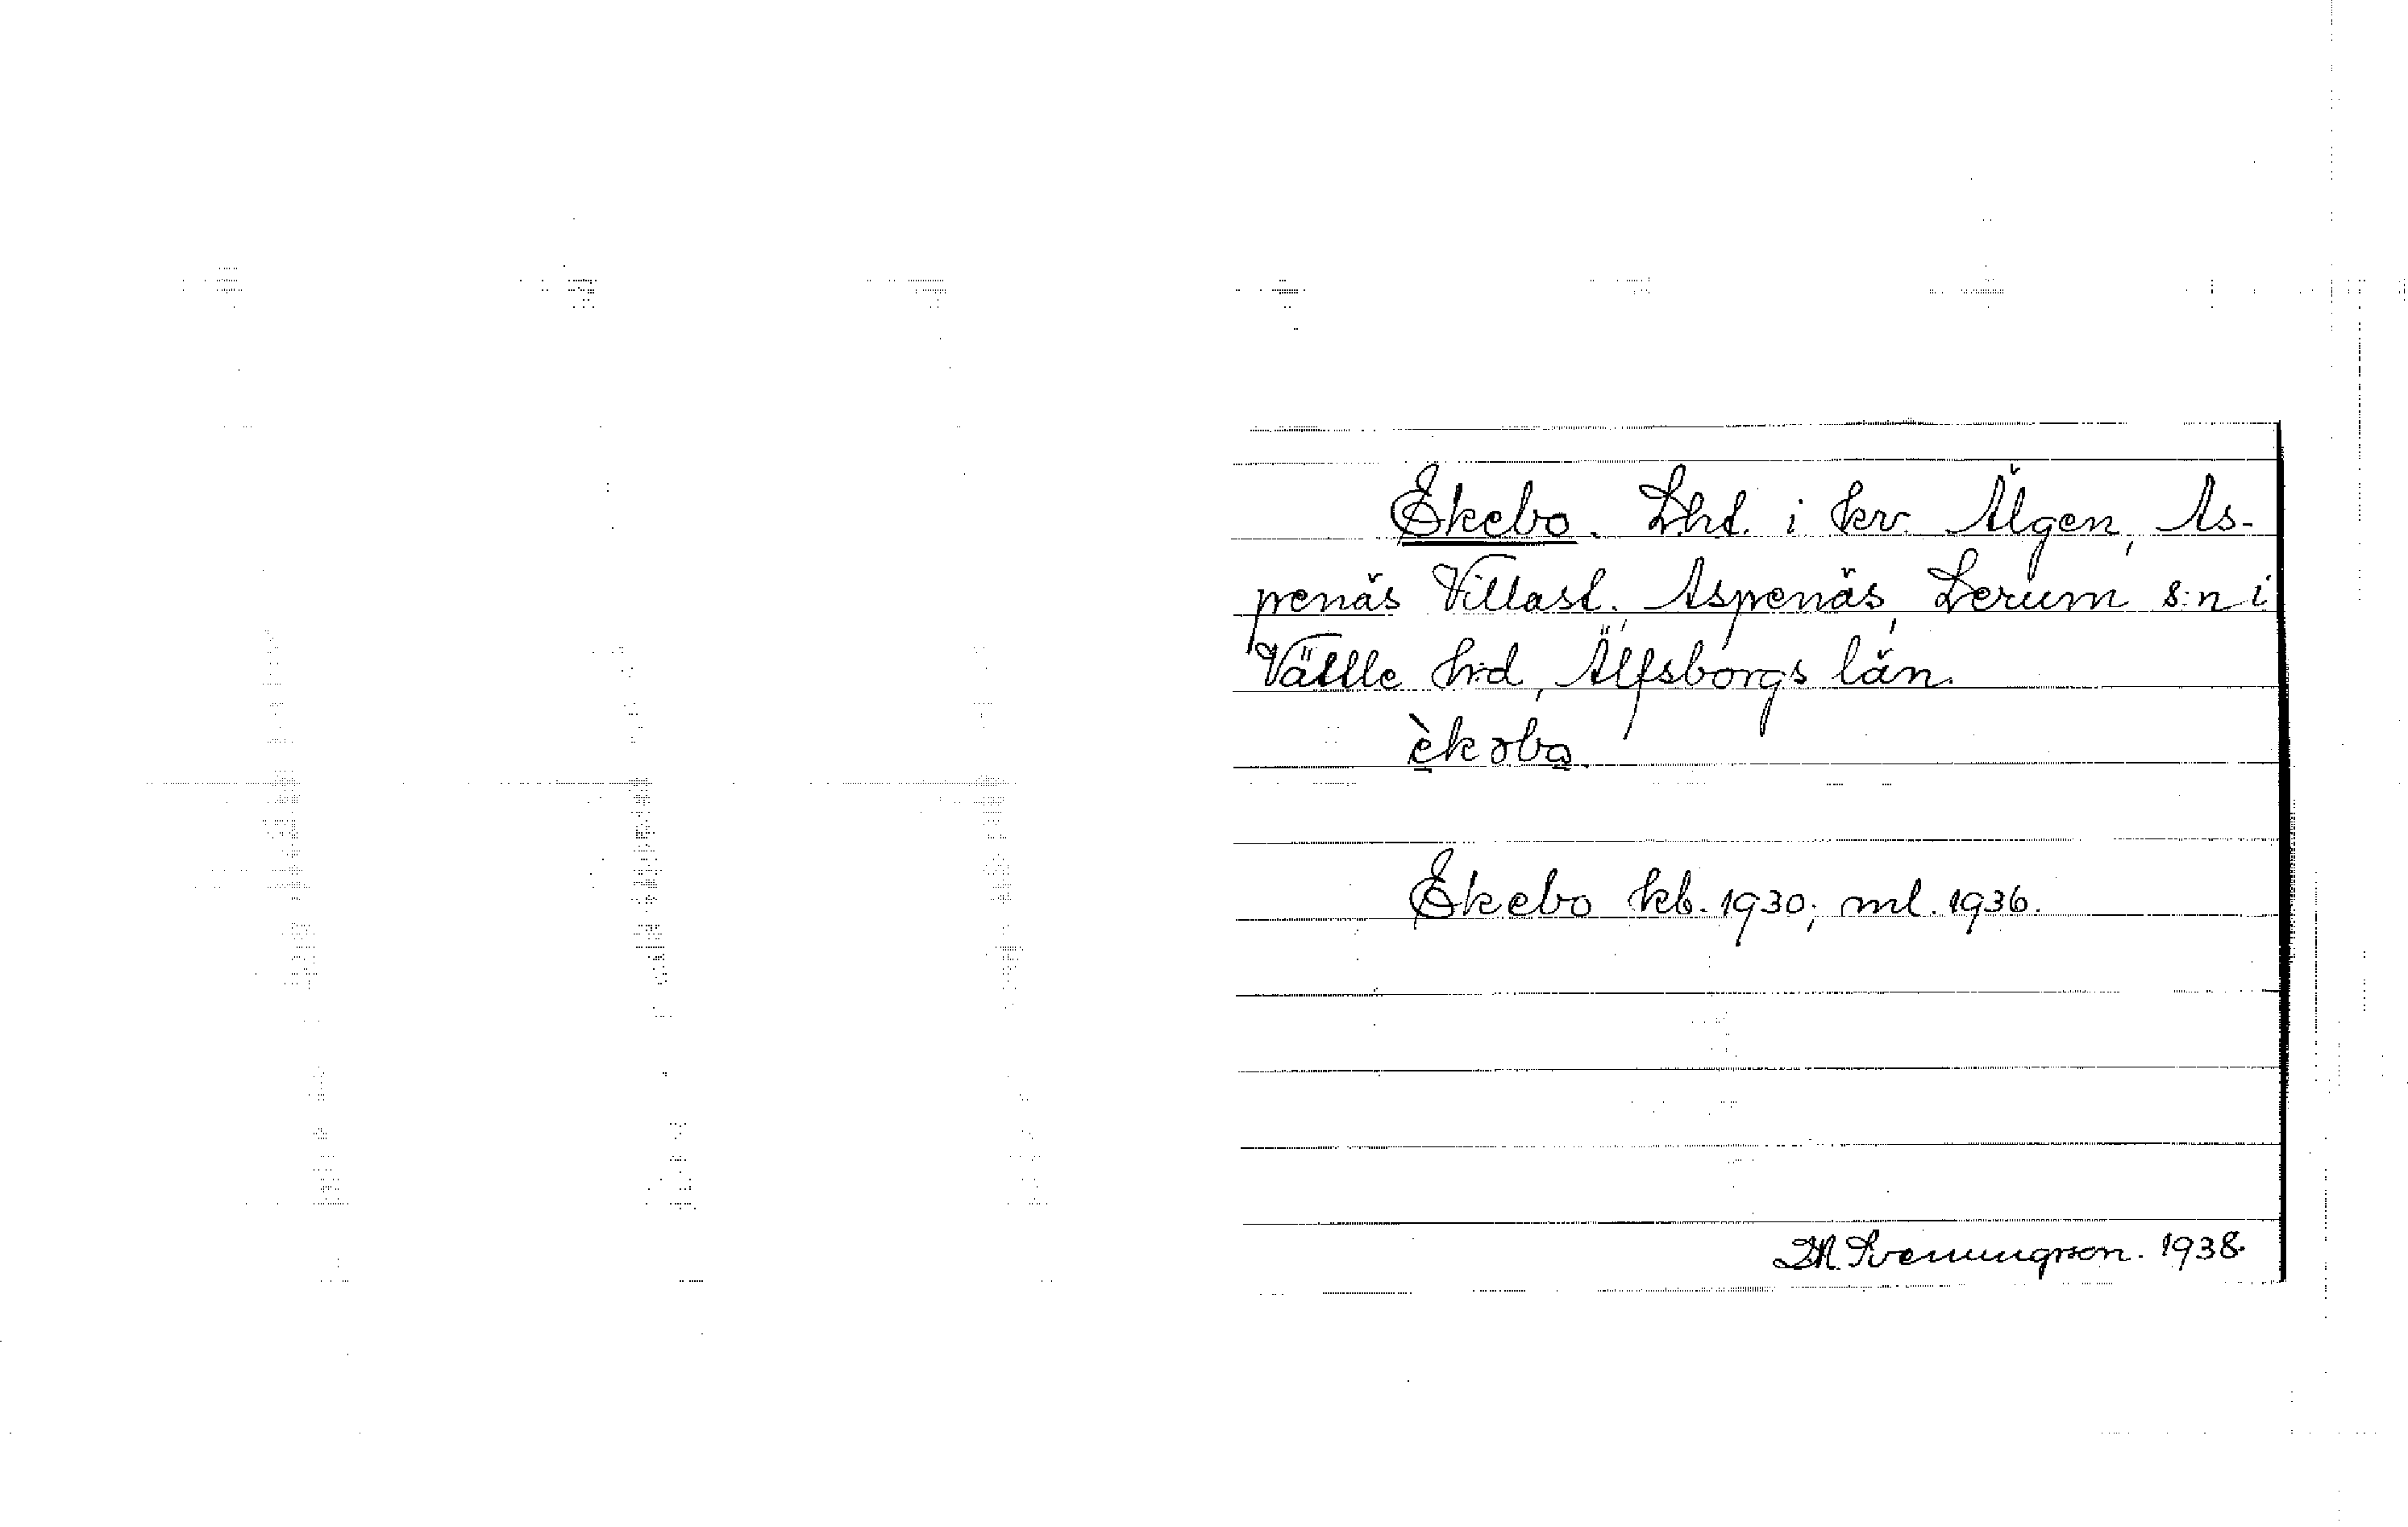 Ekebo. Lht. i kv. Älgen, As-
penäs Villast. Aspenäs, Lerum s:n i
Vättle h:d, Älfsborgs län.
èkobo.
Ekebo kb. 1930; ml. 1936.
Sveningson. 1938